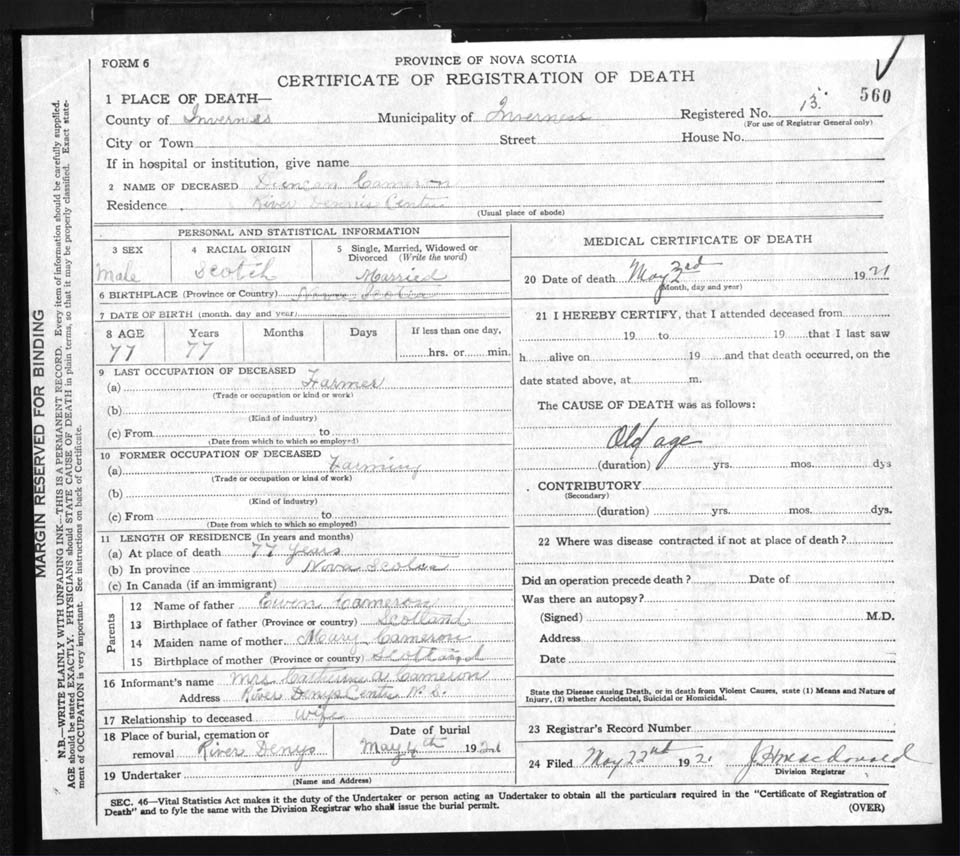 FORM 6
PROVINCE OF NOVA SCOTIA
CERTIFICATE OF REGISTRATION OF DEATH
560
1 PLACE OF DEATH—
County of Inverness Municipality of Inverness Registered No. 13
(For use of Registrar General only)
City or Town Street House No.
If in hospital or institution, give name
2 NAME OF DECEASED Duncan Cameron
Residence River Dennis Centre
(Usual place of abode)
PERSONAL AND STATISTICAL INFORMATION
3 SEX 4 RACIAL ORIGIN 5 Single, Married, Widowed or Divorced (Write the word)
Male Scotch Married
6 BIRTHPLACE (Province or Country) Nova Scotia
7 DATE OF BIRTH (month, day and year)
8 AGE Years Months Days If less than one day,
77 77 hrs. or min.
9 LAST OCCUPATION OF DECEASED
(a) Farmer
(Trade or occupation or kind or work)
(b)
(Kind of industry)
(c) From to
(Date from which to which so employed)
10 FORMER OCCUPATION OF DECEASED
(a) Farming
(Trade or occupation or kind of work)
(b)
(Kind of industry)
(c) From to
(Date from which to which so employed)
11 LENGTH OF RESIDENCE (In years and months)
(a) At place of death 77 years
(b) In province Nova Scotia
(c) In Canada (if an immigrant)
Parents
12 Name of father Ewen Cameron
13 Birthplace of father (Province or country) Scotland
14 Maiden name of mother Mary Cameron
15 Birthplace of mother (Province or country) Scotland
16 Informant's name Mrs. Catherine A Cameron
Address River Denys Centre N.S.
17 Relationship to deceased wife
18 Place of burial, cremation or removal River Denys Date of burial May 6th 1921
19 Undertaker
(Name and Address)
MEDICAL CERTIFICATE OF DEATH
20 Date of death May 3rd 1921
(Month, day and year)
21 I HEREBY CERTIFY, that I attended deceased from
19 to 19 that I last saw
h alive on 19 and that death occurred, on the
date stated above, at m.
The CAUSE OF DEATH was as follows:
Old age
(duration) yrs. mos. dys
CONTRIBUTORY
(Secondary)
(duration) yrs. mos. dys.
22 Where was disease contracted if not at place of death?
Did an operation precede death? Date of
Was there an autopsy?
(Signed) M.D.
Address
Date
State the Disease causing Death, or in death from Violent Causes, state (1) Means and Nature of
Injury, (2) whether Accidental, Suicidal or Homicidal.
23 Registrar's Record Number
24 Filed May 22nd 1921 J H Macdonald
Division Registrar
SEC. 46—Vital Statistics Act makes it the duty of the Undertaker or person acting as Undertaker to obtain all the particulars required in the "Certificate of Registration of
Death" and to fyle the same with the Division Registrar who shall issue the burial permit.
(OVER)
MARGIN RESERVED FOR BINDING
N.B.—WRITE PLAINLY WITH UNFADING INK—THIS IS A PERMANENT RECORD. Every item of information should be carefully supplied.
AGE should be stated EXACTLY. PHYSICIANS should STATE CAUSE OF DEATH in plain terms, so that it may be properly classified. Exact statement of OCCUPATION is very important. See instructions on back of Certificate.